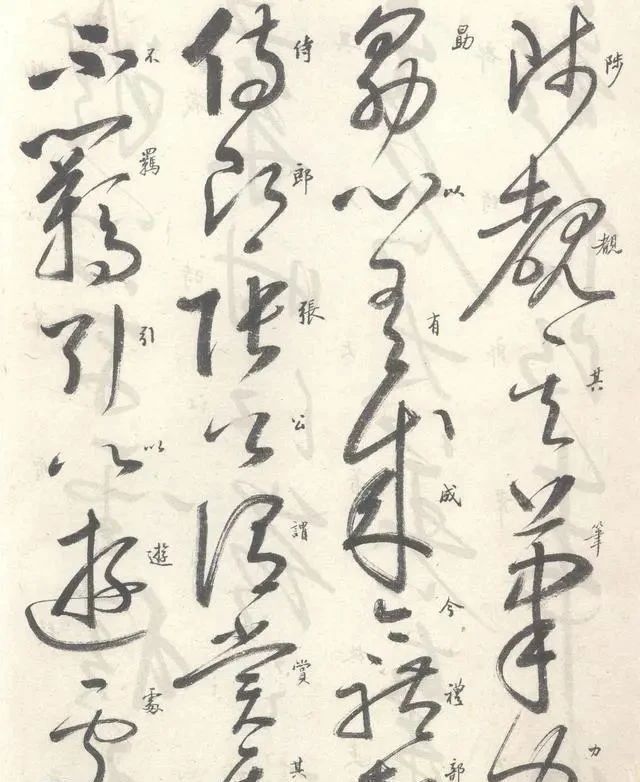 陟覩其筆力
勗以有成今禮部
侍郎張公謂賞其
不羈引以遊處